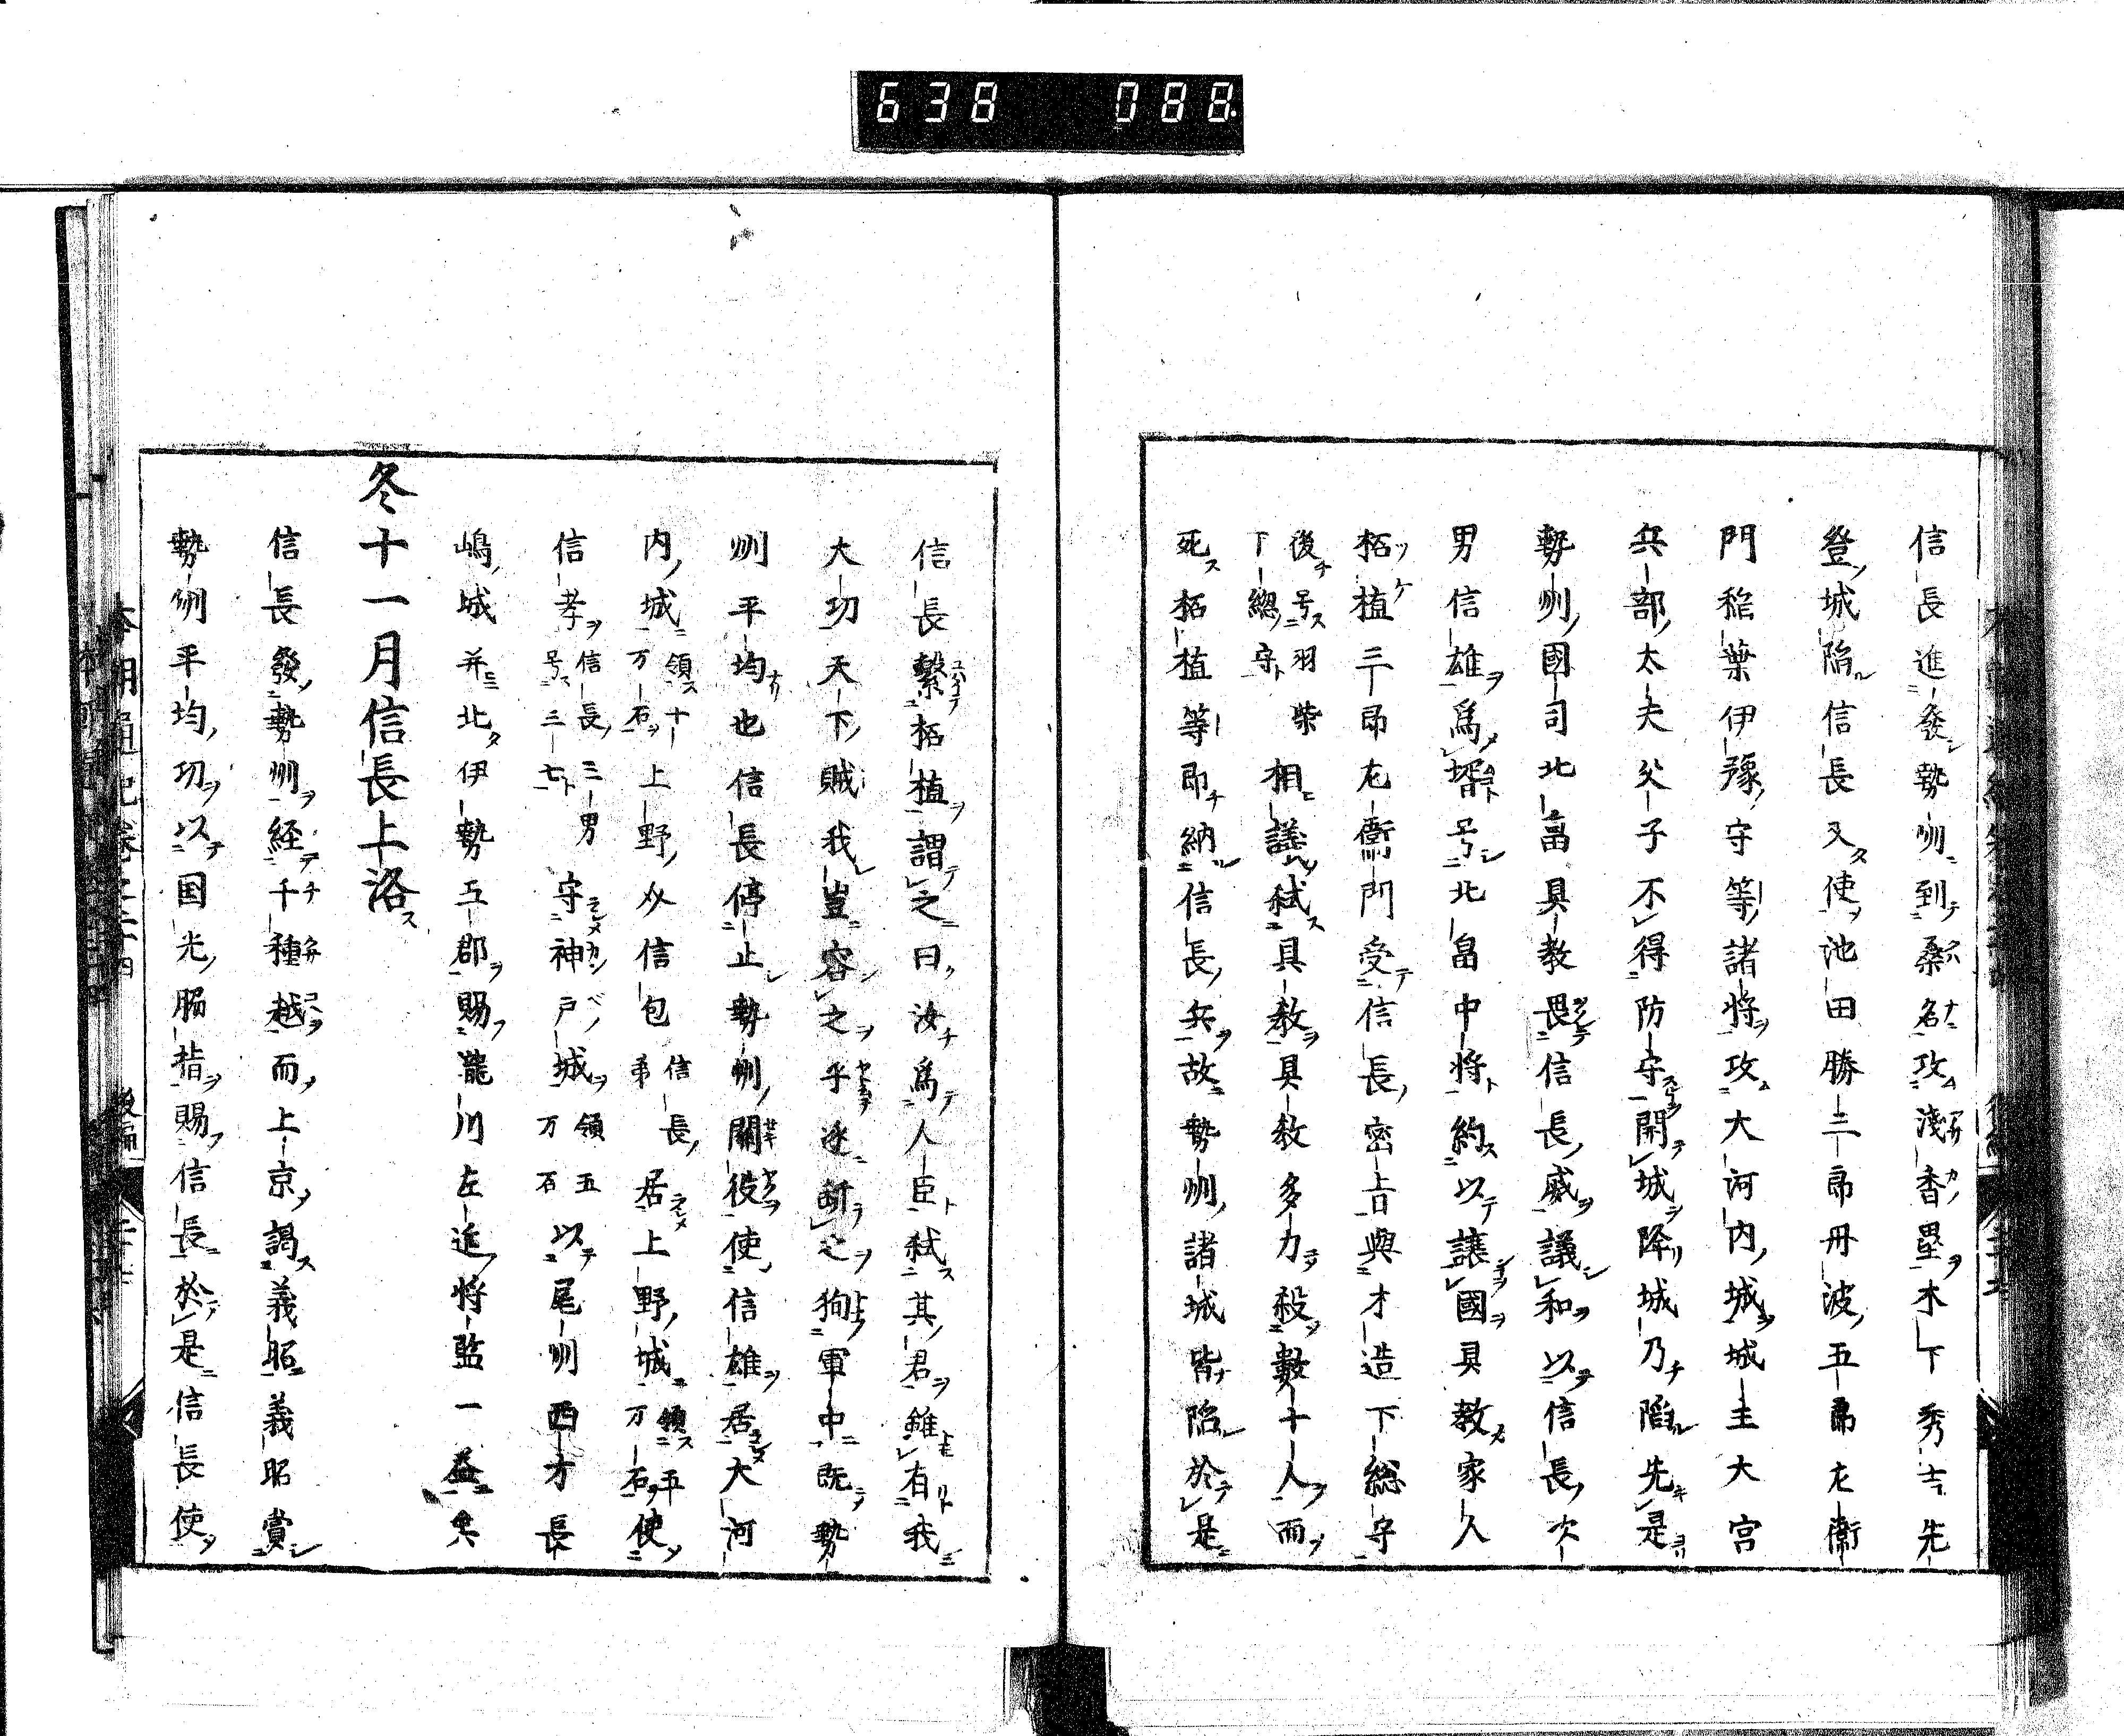 638 088
信長進發勢州到桑名攻淺香壘木下秀吉先
登城陥信長又使池田勝三郎丹波五郎左衛
門稲葉伊豫守等諸将攻大河内城城主大宮
兵部太夫父子不得防守開城降城乃陥先是
勢州國司北畠具教畏信長威議和以信長次
男信雄爲壻号北畠中将約以讓國具教家人
柘植三郎左衛門受信長密旨與才造下総守
後号羽柴下總守相議弑具教具教多力殺數十人而
死柘植等即納信長兵故勢州諸城皆陥於是
信長繫柘植謂之曰汝爲人臣弑其君雖有我
大功天下賊我豈容之乎遂斬之狥軍中既勢
州平均也信長停止勢州關役使信雄居大河
内城領十万石上野以信包信長弟居上野城領五万石使
信孝信長三男号三七守神戸城領五万石以尾州西方長
嶋城并北伊勢五郡賜瀧川左近将監一益矣
冬十一月信長上洛
信長發勢州経千種越而上京謁義昭義昭賞
勢州平均功以国光脇指賜信長於是信長使